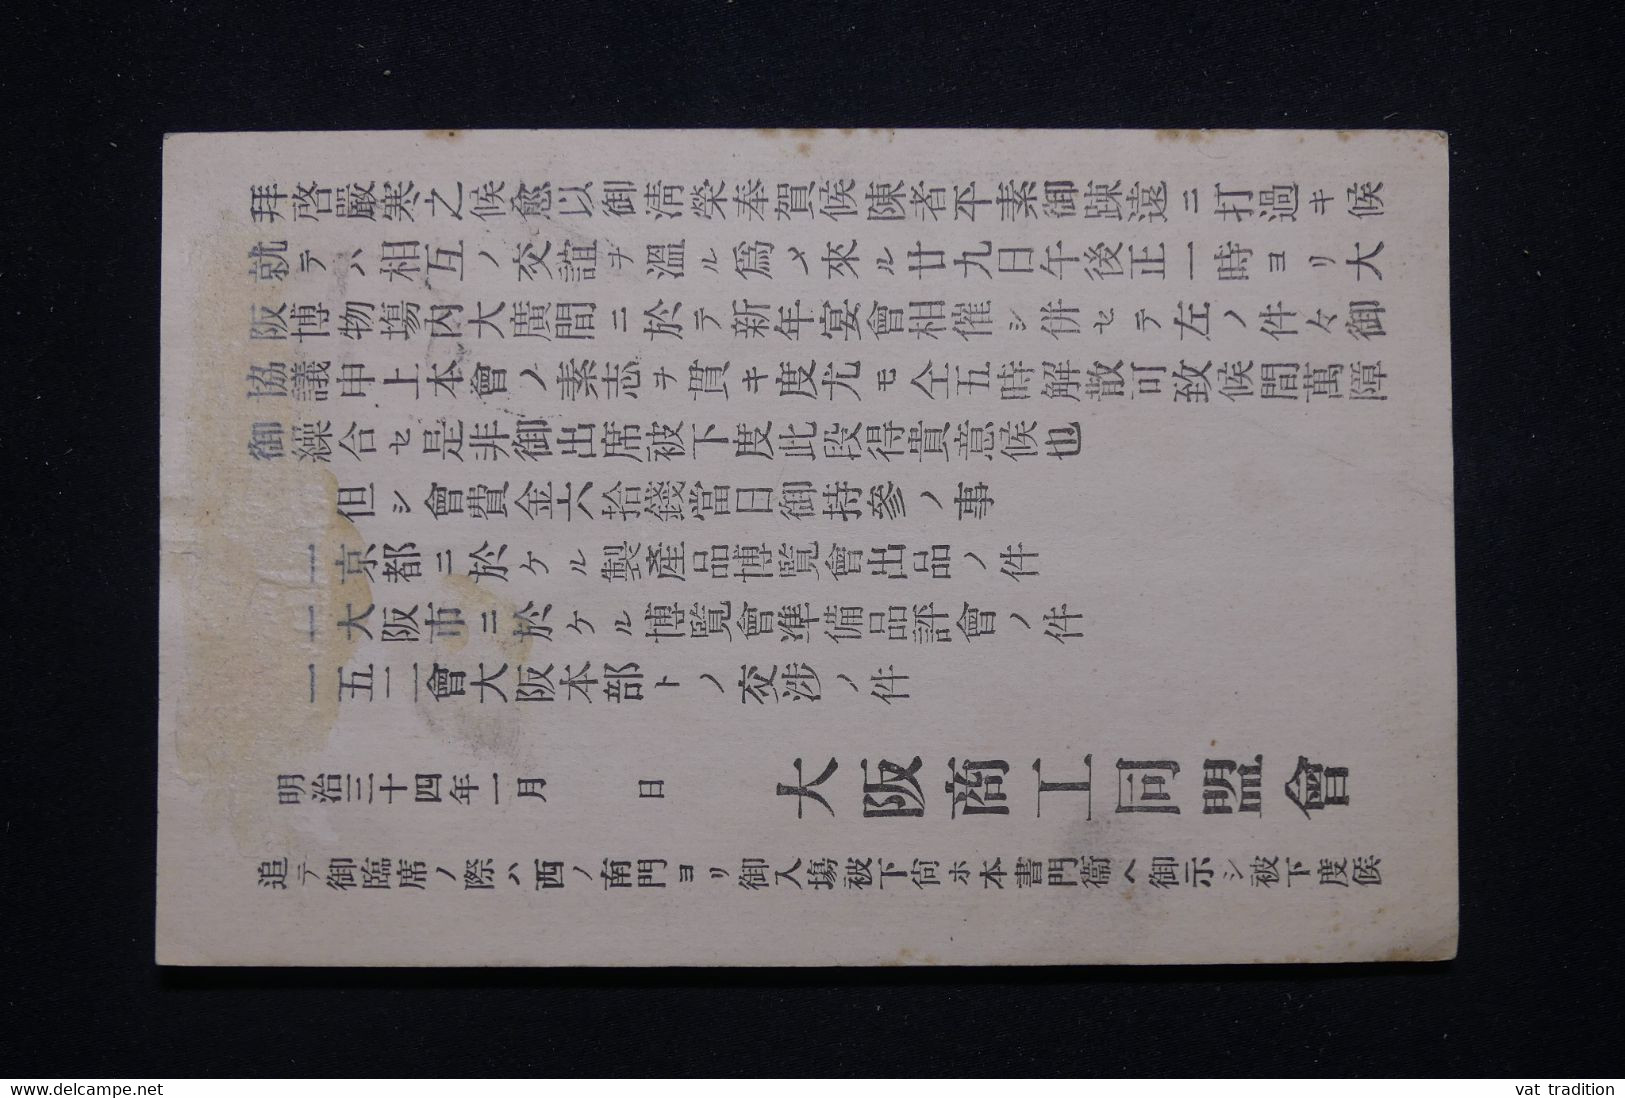 拜啓嚴寒之候愈以御淸榮奉賀候陳者平素御踈遠ニ打過キ候
就テハ相互ノ交誼ヲ溫ル爲メ來ル廿九日午後正一時ヨリ大
阪博物塲内大廣間ニ於テ新年宴會相催シ併セテ左ノ件々御
協議申上本會ノ素志ヲ貫キ度尤モ仝五時解散可致候間萬障
御繰合セ是非御出席被下度此段得貴意候也
但シ會費金六拾錢當日御持參ノ事
一京都ニ於ケル製產品博覽會出品ノ件
一大阪市ニ於ケル博覽會準備品評會ノ件
一五二會大阪本部トノ交涉ノ件
明治三十四年一月 日
大阪商工同盟會
追テ御臨席ノ際ハ西ノ南門ヨリ御入塲被下尙ホ本書門衞ヘ御示シ被下度候
www.delcampe.net
vat tradition